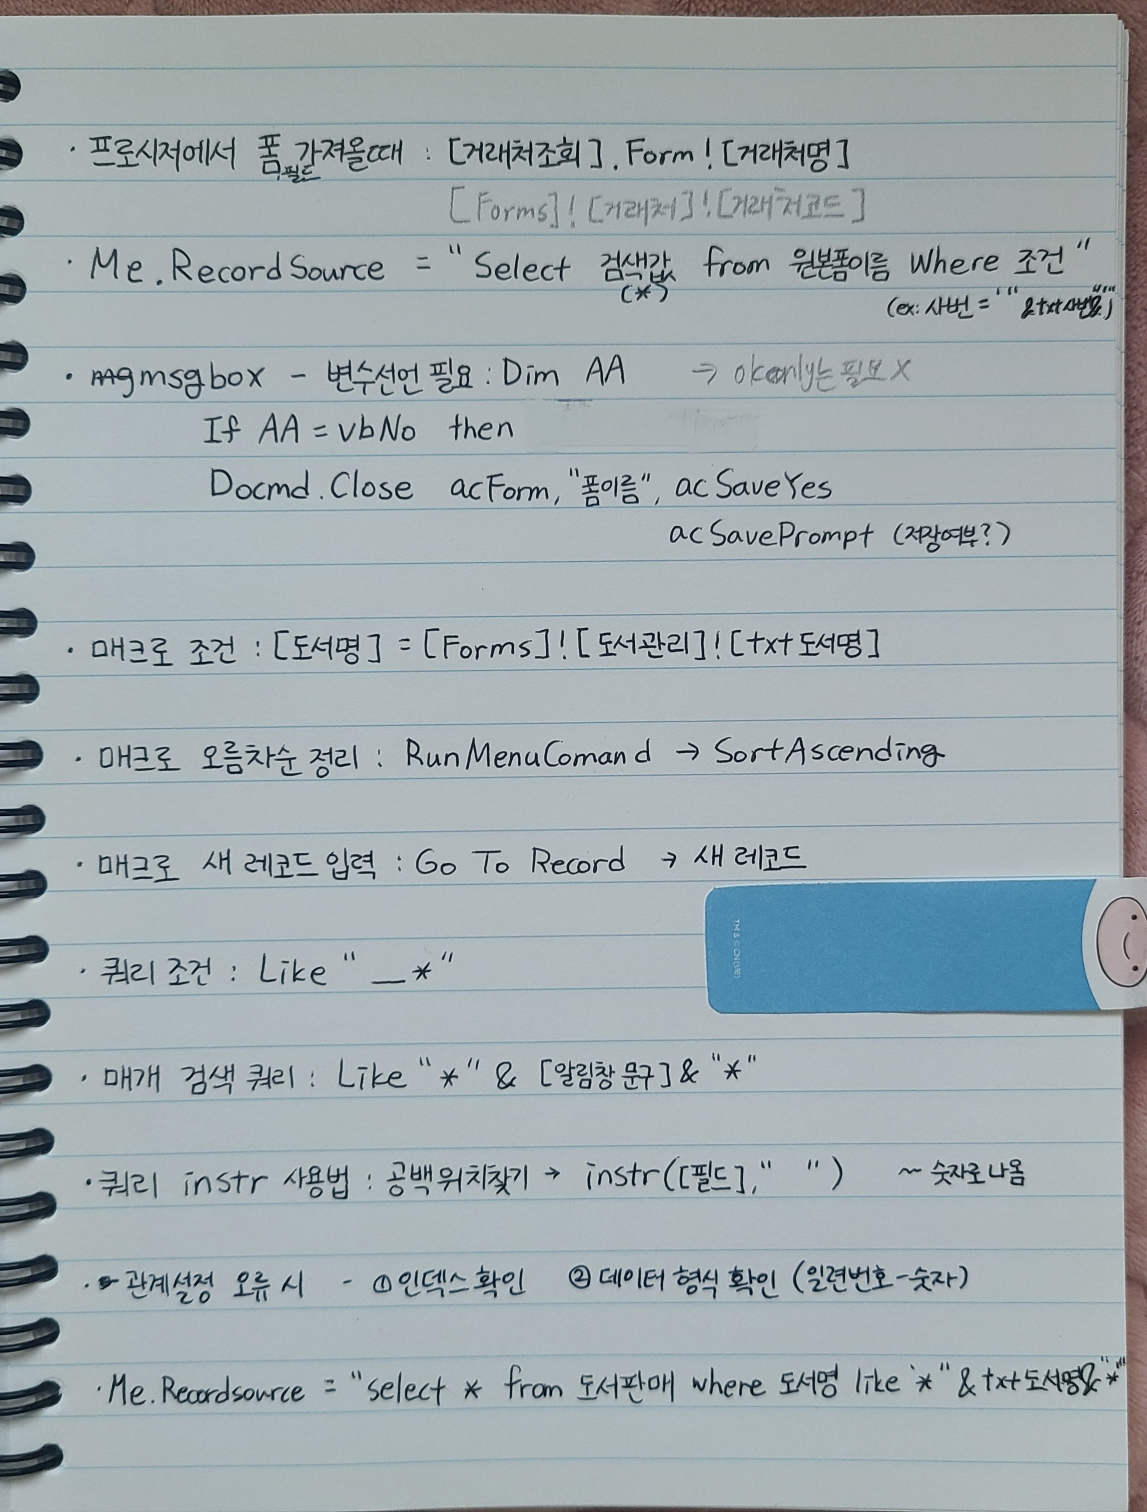 · 프로시저에서 폼 가져올때 : [거래처조회].Form![거래처명]
필드
[Forms]![거래처]![거래처코드]
· Me.RecordSource = "Select 검색값 from 원본폼이름 Where 조건"
(*)
(ex: 사번 = '" & txt사번 & "'")
· msgbox - 변수선언 필요 : Dim AA → okonly는 필요X
If AA = vbNo then
Docmd.Close acForm, "폼이름", acSaveYes
acSavePrompt (저장여부?)
· 매크로 조건 : [도서명] = [Forms]![도서관리]![txt도서명]
· 매크로 오름차순 정리 : RunMenuComand → SortAscending
· 매크로 새 레코드 입력 : Go To Record → 새 레코드
· 쿼리 조건 : Like "__*"
· 매개 검색 쿼리 : Like "*" & [알림창 문구] & "*"
· 쿼리 instr 사용법 : 공백위치찾기 → instr([필드]," ") ~ 숫자로 나옴
· 관계설정 오류 시 - ①인덱스확인 ②데이터 형식 확인 (일련번호-숫자)
· Me.Recordsource = "select * from 도서판매 where 도서명 like '*" & txt도서명 & "*'"